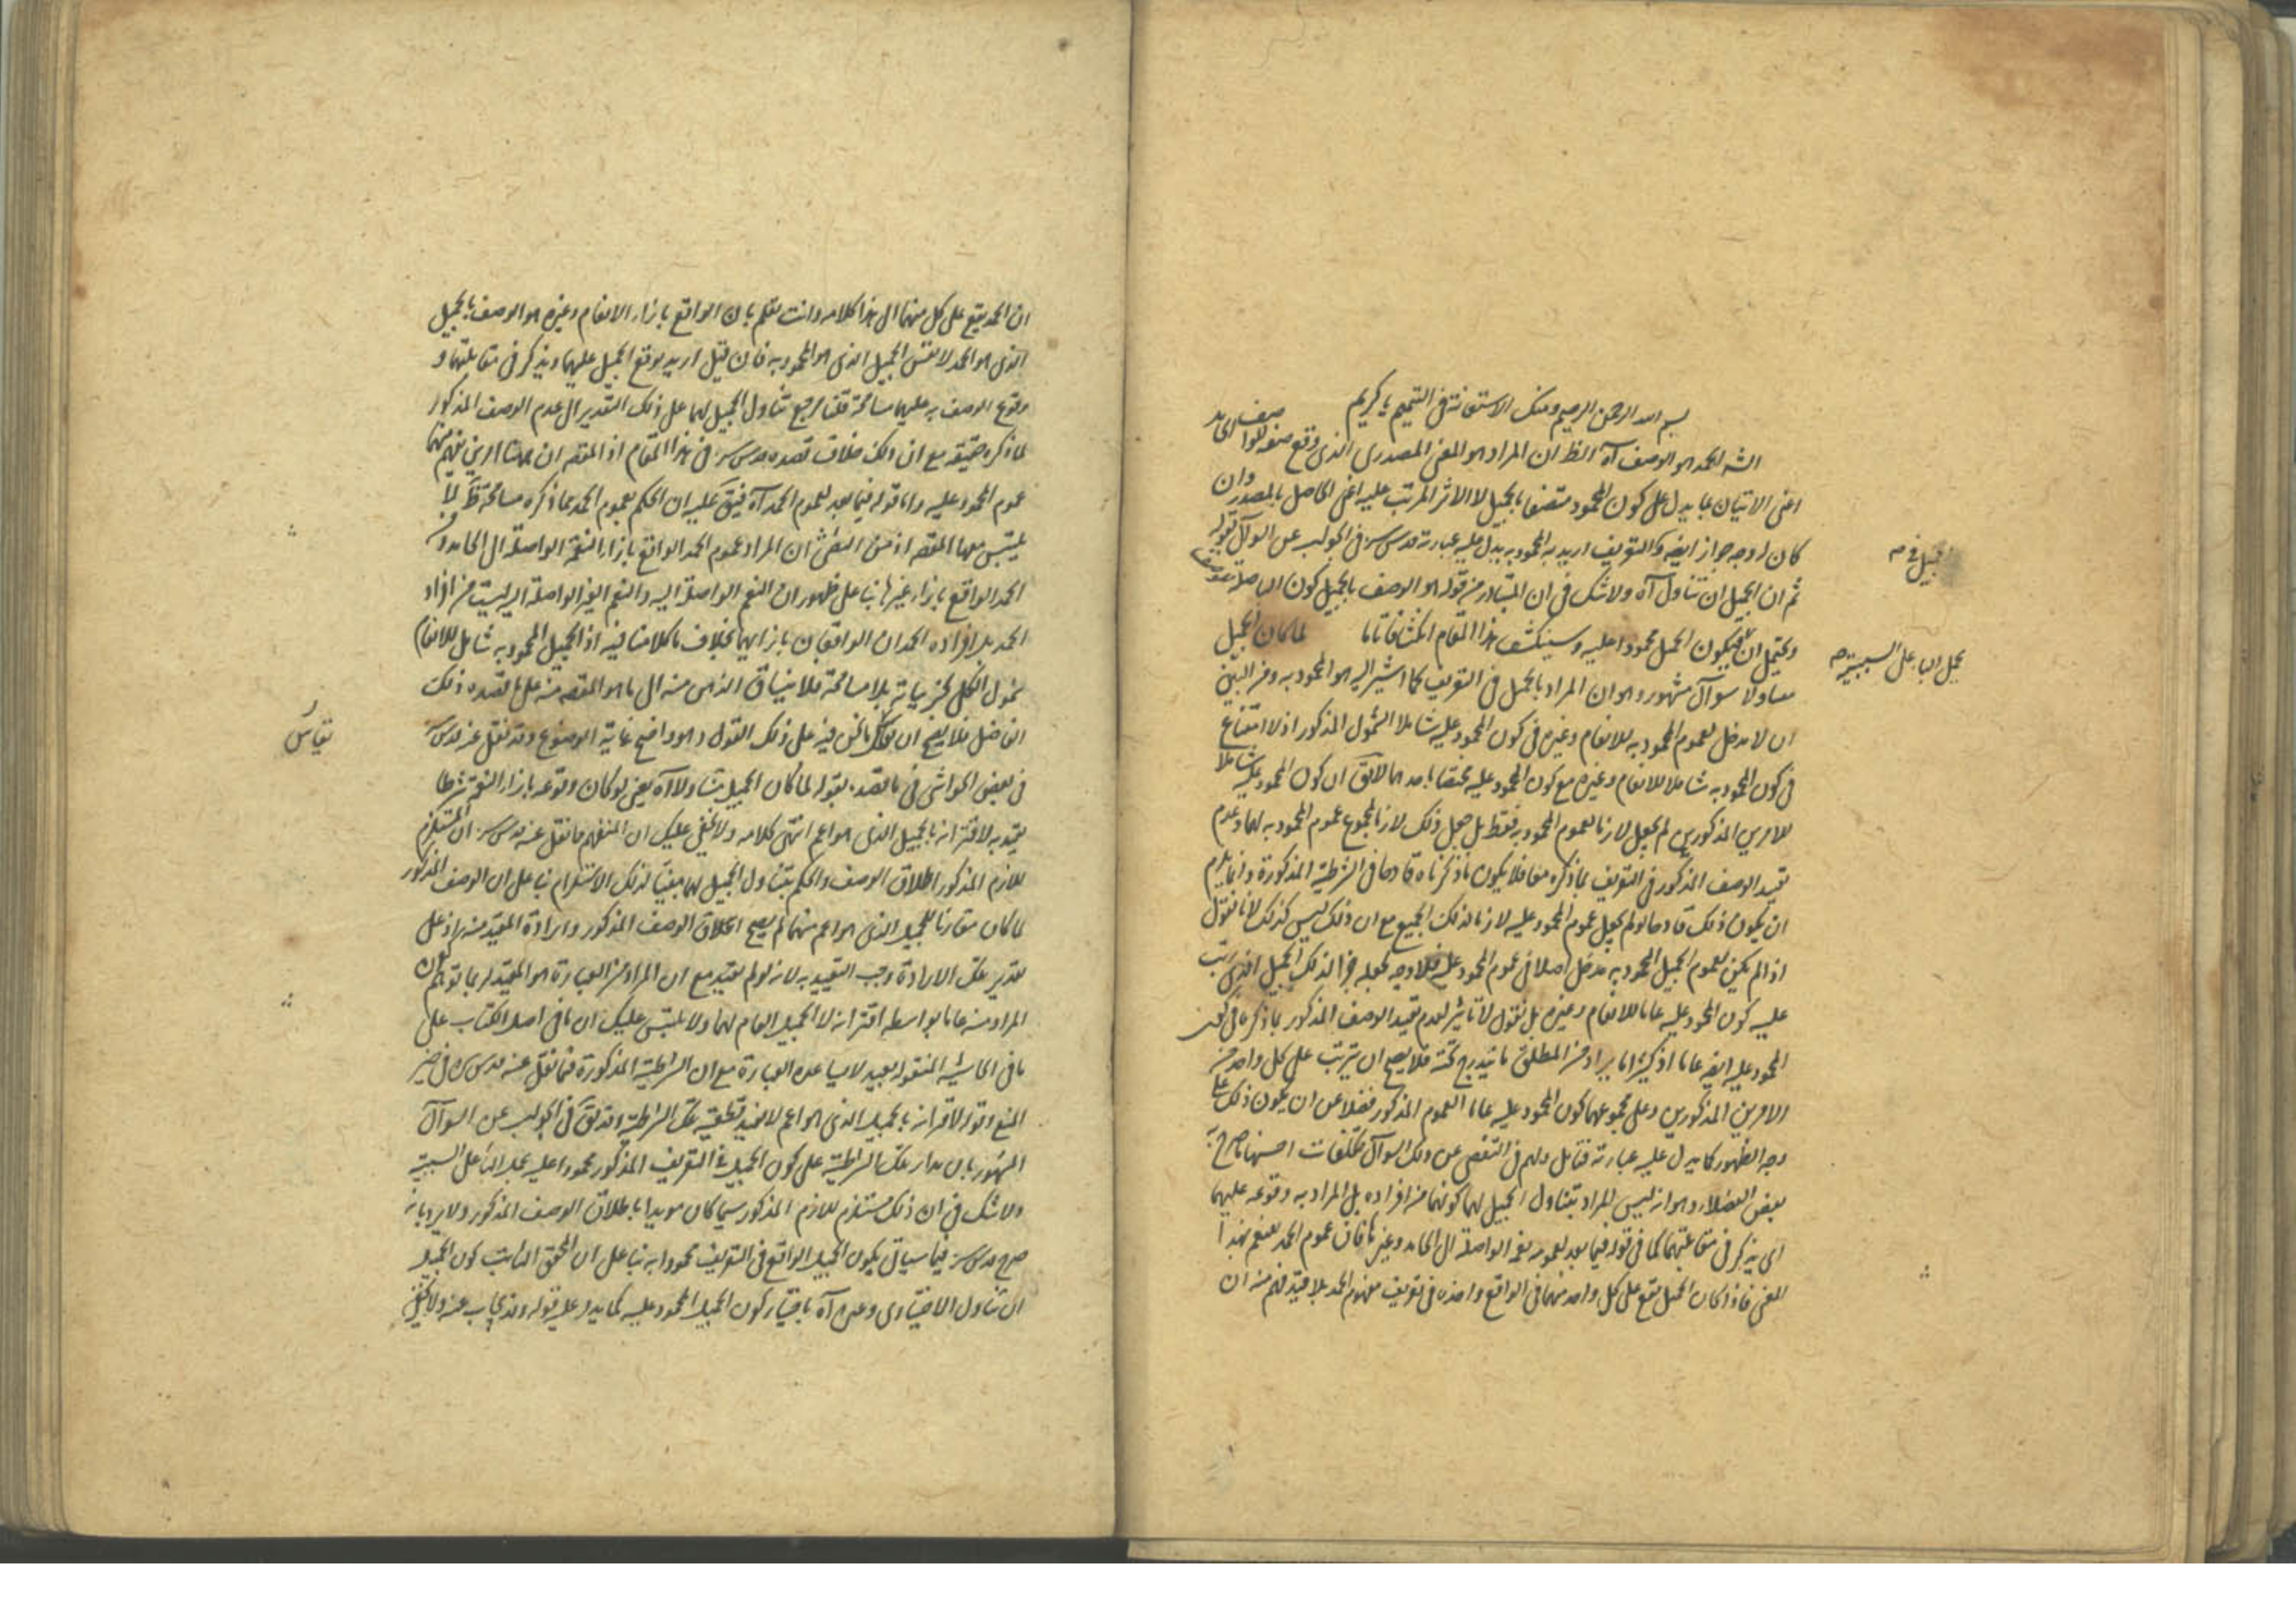 بسم الله الرحمن الرحيم ومنك الاستعانة في التتميم يا كريم
الحمد هو الوصف آه الظ ان المراد هو المعنى المصدري الذي وقع
اعنى الاتيان بما يدل على كون المحمود متصفا بالجميل لا الاثر المرتب عليه اعنى الحاصل بالمصدر وان
كان له وجه جواز ايضا التعريف اريد به المحمود به يدل عليه عبارته قدس سره في الجواب عن السوال قوله
ثم ان الجميل ان تناول آه ولا شك في ان المتبادر من قوله هو الوصف بالجميل كون الباء صلة
ويحتمل ان فيكون الجميل محمودا عليه وسينكشف هذا المقام انكشافا تاما لما كان الجميل
متناولا سوال مشهور وهو ان المراد بالجميل في التعريف كما اشير اليه هو المحمود به ومن البين
ان لا مدخل لعموم المحمود به للانعام وغيره في كون المحمود عليه شاملا الشمول المذكور اذ لا امتناع
في كون المحمود به شاملا للانعام وغيره مع كون المحمود عليه مختصا باحدهما لا يق ان كون المحمود عليه شاملا
للامرين المذكورين لم يجعل لازما لعموم المحمود به فقط بل جعل ذلك لازما لمجموع عموم المحمود به لهما وعدم
تقييد الوصف المذكور في التعريف بما ذكره معا فلا يكون ما ذكرناه قادحا في الشرطية المذكورة وانما يلزم
ان يكون ذلك قادحا لو لم يجعل عموم المحمود عليه لازما لذلك الجميع مع ان ذلك ليس كذلك لانا نقول
اذا لم يكن لعموم الجميل المحمود به مدخل اصلا في عموم المحمود عليه فلا وجه لجعله جزا لذلك الجميل الذي رتب
عليه كون المحمود عليه عاما للانعام وغيره بل نقول لا تاثير لعدم تقييد الوصف المذكور بما ذكر في كون
المحمود عليه ايضا عاما اذ كثيرا ما يراد من المطلق ما يندرج تحته فلا يصح ان يترتب على كل واحد من
الامرين المذكورين وعلى مجموعهما كون المحمود عليه عاما العموم المذكور فضلا عن ان يكون ذلك على
وجه الظهور كما يدل عليه عبارته فتامل ولهم في التفصي عن ذلك السوال تكلفات احسنها ما صرح به
بعض الفضلاء وهو انه ليس المراد بتناول الجميل لهما كونهما من افراده بل المراد به وقوعه عليهما
اى يذكر في مقابلتهما كما في قوله فيما بعد لعمومه نعم الواصلة الى الحامد وغيرها فان عموم الحمد للنعم بهذا
المعنى فاذا كان الجميل يقع على كل واحد منهما في الواقع واخذه في تعريف مفهوم الحمد بلا قيد فهم منه ان
يحمل الباء على السببية صح
ان الحمد يقع على كل منهما الى هذا كلامه وانت تعلم بان الواقع بازاء الانعام وغيره هو الوصف بالجميل
الذي هو الحمد لا نفس الجميل الذي هو المحمود به فان قيل اريد بوقوع الجميل عليهما ويذكر في مقابلتهما و
وقوع الوصف به عليهما مسامحة قلنا يرجع تناول الجميل لهما على ذلك التقدير الى عدم الوصف المذكور
لما ذكره حقيقة مع ان ذلك خلاف قصده قدس سره في هذا المقام اذ المقصد ان ههنا امرين يفهم منهما
عموم المحمود عليه واما قوله فيما بعد لعموم الحمد آه فيتوجه عليه ان الحكم بعموم الحمد بما ذكره مسامحة
يلتبس معها المقصد اذ من البين ان المراد عموم الحمد الواقع بازاء النعمة الواصلة الى الحامد و
الحمد الواقع بازاء غيرها بناء على ظهور ان النعم الواصلة اليه والنعم الغير الواصلة اليه ليست من افراد
الحمد بل افراده الحمدان الواقعان بازائهما بخلاف ما كلامنا فيه اذ الجميل المحمود به شامل للانعام
شمول الكلي لجزئياته بلا مسامحة فلا ينساق الذهن منه الى ما هو المقصد منه على ما قصده ذلك
الفاضل فلا يصح ان ما نحن فيه على ذلك القول وهو واضح غاية الوضوح وقد نقل عنه قدس سره
في بعض الحواشي في ما قصده بقوله لما كان الجميل متناولا آه يعنى لو كان وقوعه بازاء النعمة شرطا
يقيد به لاقترانه بالجميل الذي هو اعم انتهى كلامه ولا يخفى عليك ان المنفهم مما نقل عنه قدس سره ان المستلزم
للازم المذكور اطلاق الوصف والحكم بتناول الجميل لهما بقينا لذلك الاستلزام بناء على ان الوصف المذكور
لما كان مقارنا للجميل الذي هو اعم منهما لم يصح اطلاق الوصف المذكور وارادة المقيد منه اذ على
تقدير تلك الارادة وجب التقييد به لانه لو لم يقيد مع ان المراد من العبارة هو المقيد لربما توهم كون
المراد منه عاما بواسطة اقترانه بالجميل العام لهما ولا يلتبس عليك ان ما في اصل الكتاب على
ما في الحاشية المنقولة بعيد لا سيما هذه العبارة مع ان الشرطية المذكورة فيما نقل عنه قدس سره في حيز
المنع وقوله لاقترانه بالجميل الذي هو اعم لا يفيد قطعية تلك الشرطية وقد يق في الجواب عن السوال
المشهور بان مدار تلك الشرطية على كون الجميل في التعريف المذكور محمودا عليه بحمل الباء على السببية
ولا شك في ان ذلك مستلزم للازم المذكور سيما كان مويدا باطلاق الوصف المذكور ولا يرد بانه
صرح قدس سره فيما سياتي بكون الجميل الواقع في التعريف محمودا به بناء على ان المحقق الثابت كون الجميل
ان تناول الاختياري وغيره آه باختيار كون الجميل المحمود عليه كما يدل عليه قوله وقد يجاب عنه ولا يخفى